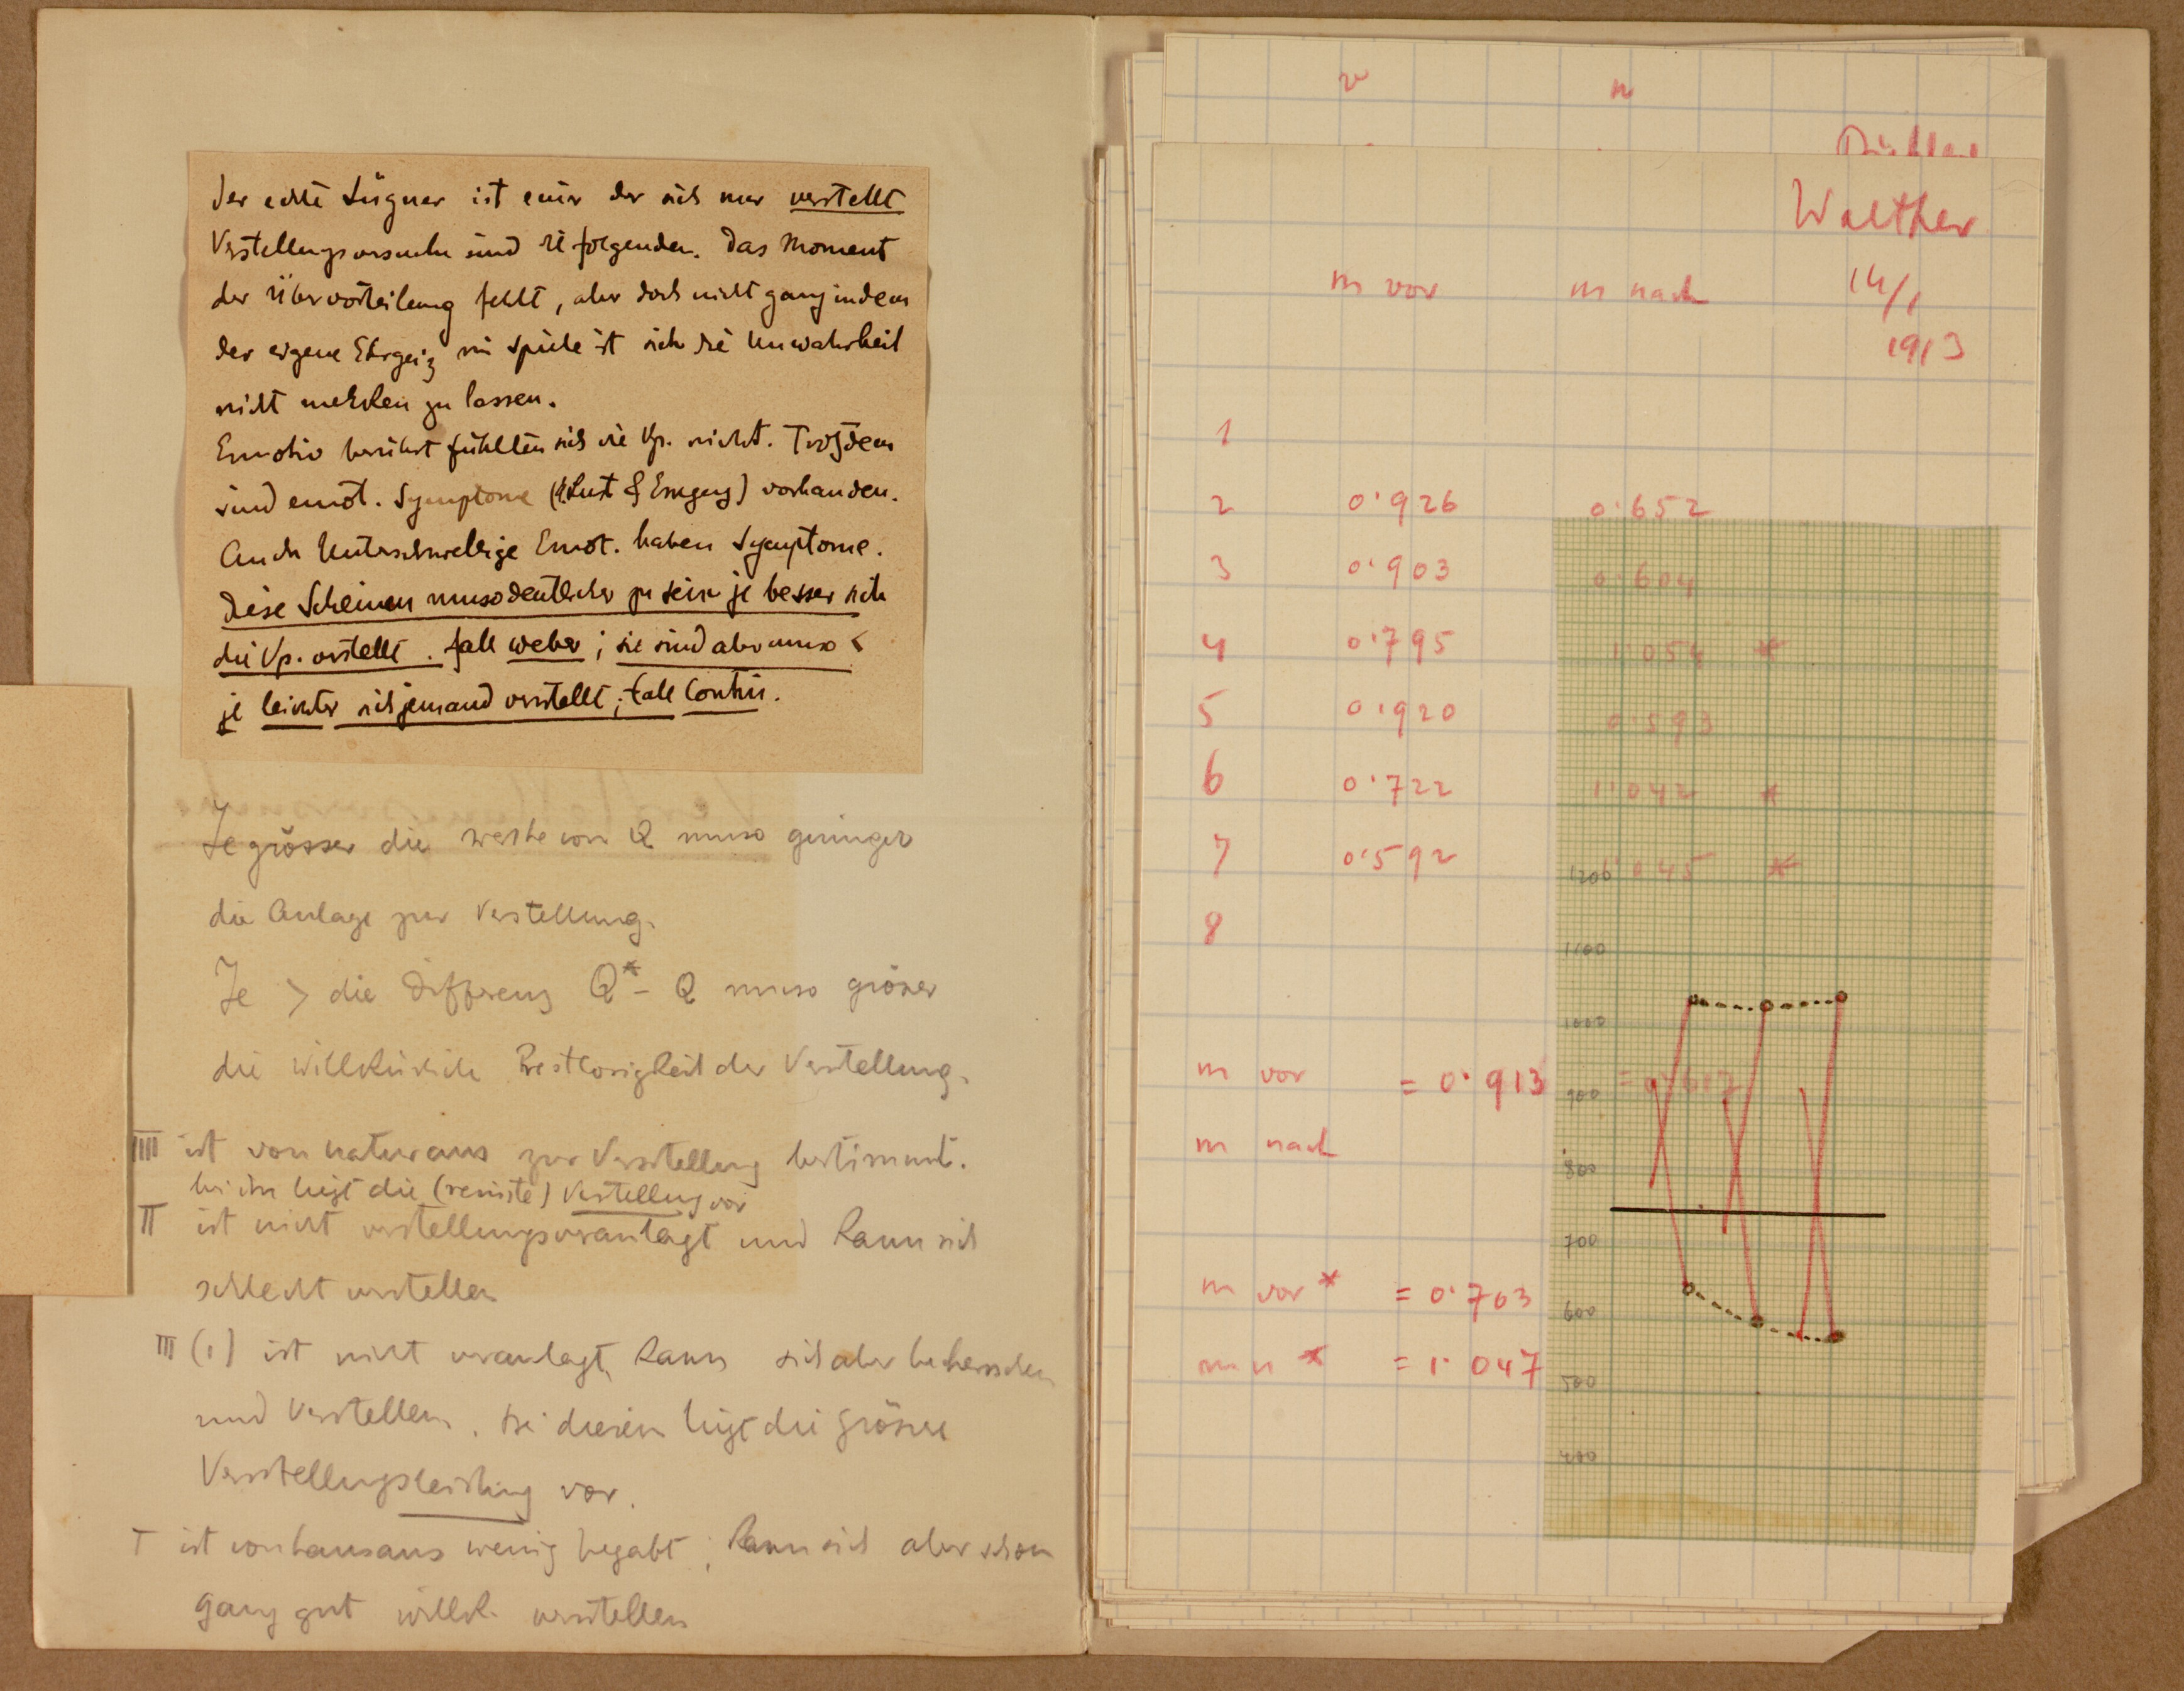 Der echte Lügner ist einer der sich nur verstellt
Verstellungsversuche sind die folgenden. Das Moment
der Übervorteilung fehlt, aber doch nicht ganz indem
der eigene Ehrgeiz im Spiele ist sich die Unwahrheit
nicht merken zu lassen.
Emotiv berührt fühlten sich die Vp. nicht. Trotzdem
sind emot. Symptome (Lust & Erregung) vorhanden.
Auch Unterschwellige Emot. haben Symptome.
Diese Scheinen umso deutlicher zu sein je besser sich
die Vp. verstellt. Fall Weber; sie sind aber umso <
je leichter sich jemand verstellt; Fall
Je grösser die Werte von Q umso geringer
die Anlage zur Verstellung.
Je > die Differenz Q* - Q umso grösser
die willkürliche Restlosigkeit der Verstellung.
IIII ist von natur aus zur Verstellung bestimmt.
bei ihm liegt die Verstellung vor
II ist nicht verstellungsveranlagt und kann sich
schlecht verstellen
III (1) ist nicht veranlagt, kann sich aber beherrschen
und Verstellen. bei diesem liegt die grösste
Verstellungsleistung vor.
I ist von hausaus wenig begabt; kann sich aber schon
ganz gut willk. verstellen
v n
Walther
m vor m nach 14/1
1913
1
2 0·926 0·652
3 0·903 0·604
4 0·795 1·054 *
5 0·920 0·593
6 0·722 1·042 *
7 0·592 1·045 *
8
1200
1100
1000
m vor = 0·913 = 0·617
900
m nach
800
700
m vor * = 0·703
600
m n * = 1·047
500
400